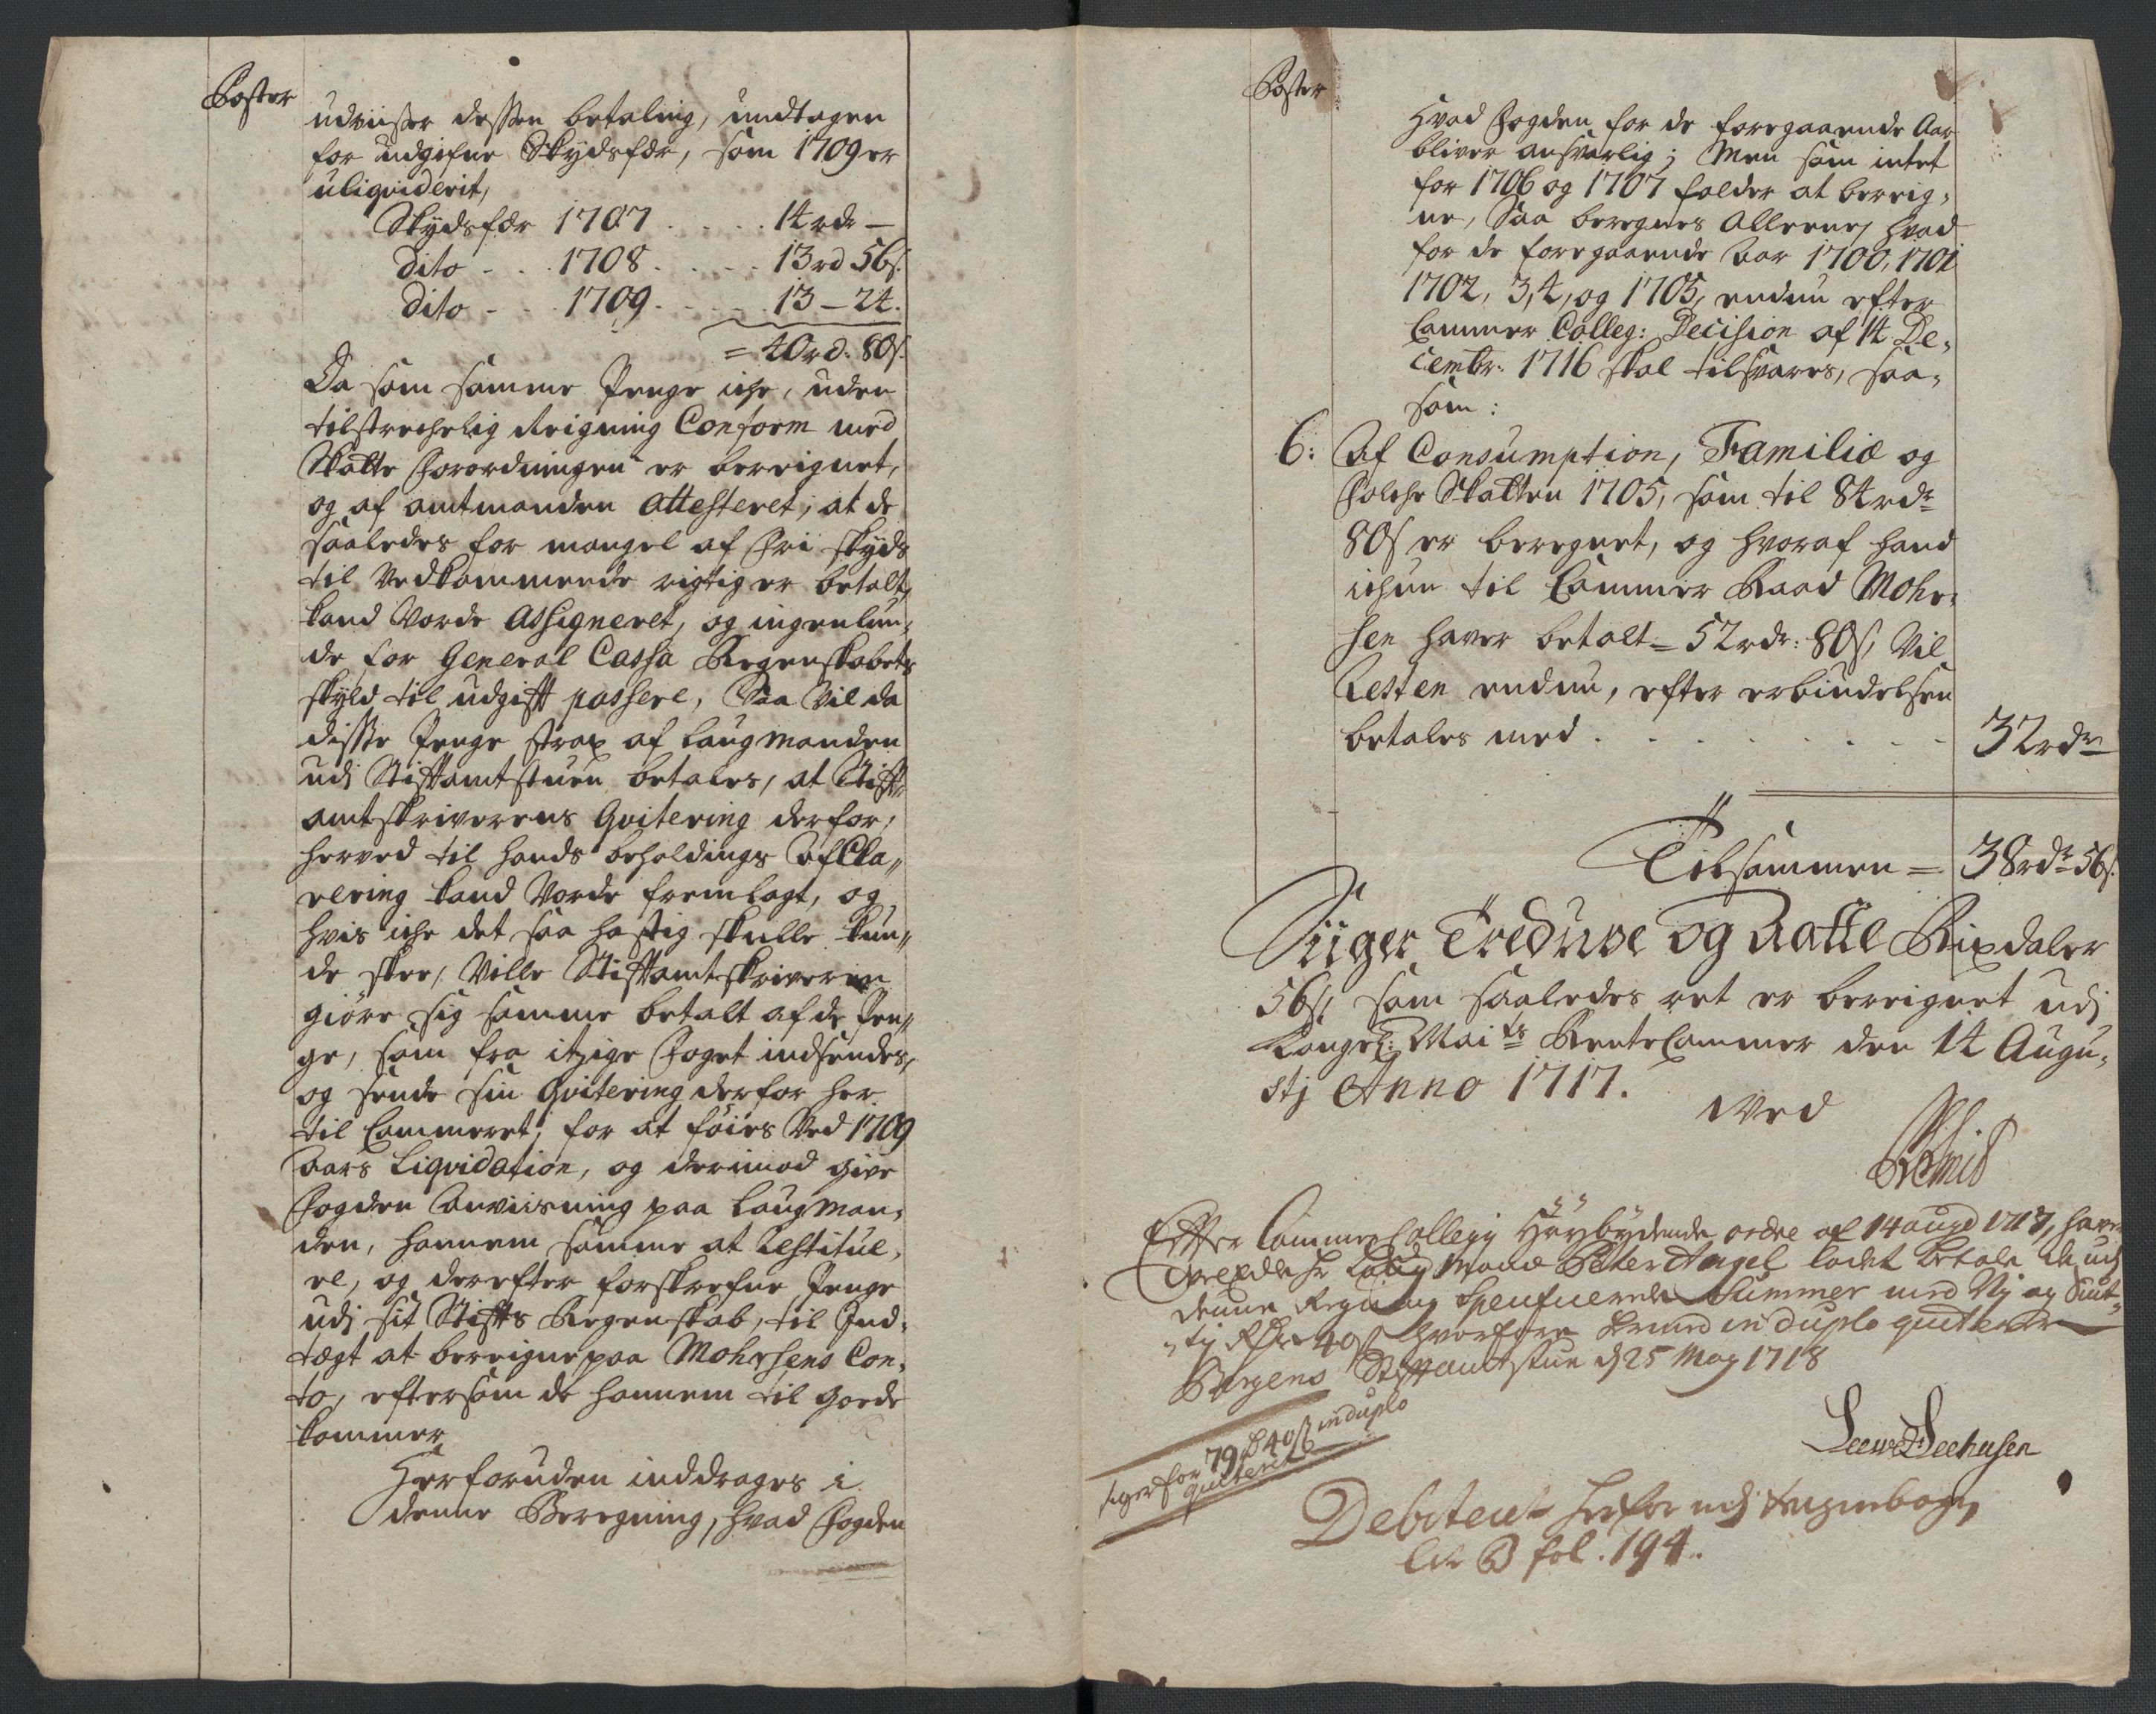 Poster
udviiser dessen betaling, undtagen
for udgifne Skydsfær, som 1709 er
uliqviderit,
Skydsfær 1707 . . . . 14 rdr —
dito - . . 1708 . . . . 13 rd 56 s.
dito - . . 1709 . . . . 13 — 24.
= 40 rd. 80 s.
Da som samme Penge iche, uden
tilstrechelig Reigning Conform med
Skatte Forordningen er bereignet,
og af amtmanden attesteret, at de
saaledes for mangel af Fri skyds
til Vedkommende rigtig er betalt,
kand Vorde assigneret, og ingenlun,
de for General Cassa Regenskabets
skyld til udgift passere, Saa Vil da
disse Penge strax af Laugmanden
udj Stiftamtstuen betales, at Stift
amtskriverens Qvitering derfor,
herved til hands beholdings afCla"
rering kand Vorde fremlagt, og
hvis iche det saa hastig skulle kun"
de skee, Ville Stiftamtskriveren
giøre sig samme betalt af de Pen"
ge, som fra itzige Foget indsendes,
og sende sin Qvitering derfor her
til Cammeret, for at føies Ved 1709
Aars Liqvidation, og derimod give
Fogden Anviisning paa Laugman,
den, hannem samme at Restitue,
re, og derefter forskrefne Penge
udj sit Stifts Regenskab, til Ind,
tægt at bereigne paa Mohrsens Con,
to, eftersom de hannem til gode
kommer
Herforuden inddrages i
denne Beregning, hvad Fogden
Poster
Hvad Fogden for de foregaaende Aar
bliver ansvarlig; Men som intet
for 1706 og 1707 falder at bereig,
ne, Saa beregnes Alleene, hvad
for de foregaaende Aar 1700, 1701
1702, 3, 4, og 1705, endnu efter
Cammer Colleg: Decision af 14 De,
cembr. 1716 skal tilsvares, saa,
som:
6: Af Consumption, Familie og
Folche Skatten 1705, som til 84 rdr
80 s er beregnet, og hvoraf hand
ichun til Cammer Raad Mohr,
sen haver betalt = 52 rdr: 80 s, Vil
Resten endnu, efter erbiudelsen
betales med . . . . . . . 32 rdr
Tilsammen = 38 rdr 56 s.
Siiger Tredive og Aatte Rixdaler
56 s, som saaledes ret er bereignet udj
Kongel: Mai ts RenteCammer den 14 Augu,
stj Anno 1717.
Ved
Efter Cammer Collegij Høybydende ordre af 14 aug 1717, haver
Laug Mand Peter Angel ladet betale de udj
denne Regning Summer med Nj og Siut,
tj Rdr 40 s hvorfore hermed in duplo quiterer
Bergens Stiftamtstue d 25 Maj 1718
siger for 79 40 s in duplo
quiterit
Seehusen
Debiteret herfor udj
Litr B fol. 194.